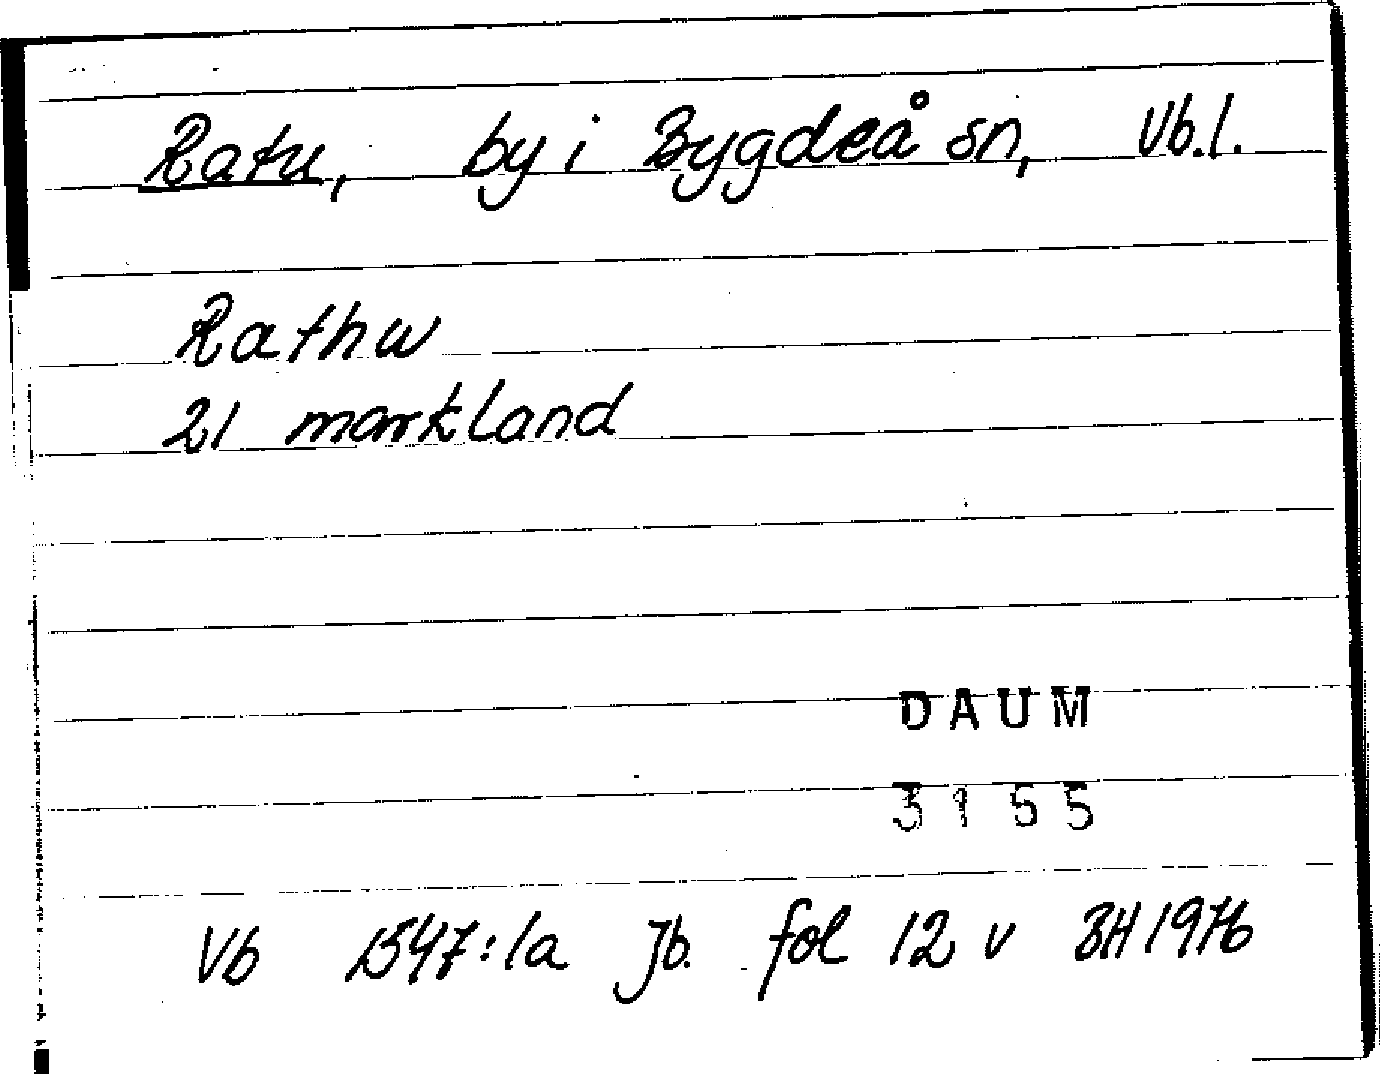 Ratu, by i Bygdeå sn, Vb.l.
Rathw
21 markland
DAUM
3155
Vb 1547:1a Jb. fol 12 v BH 1976